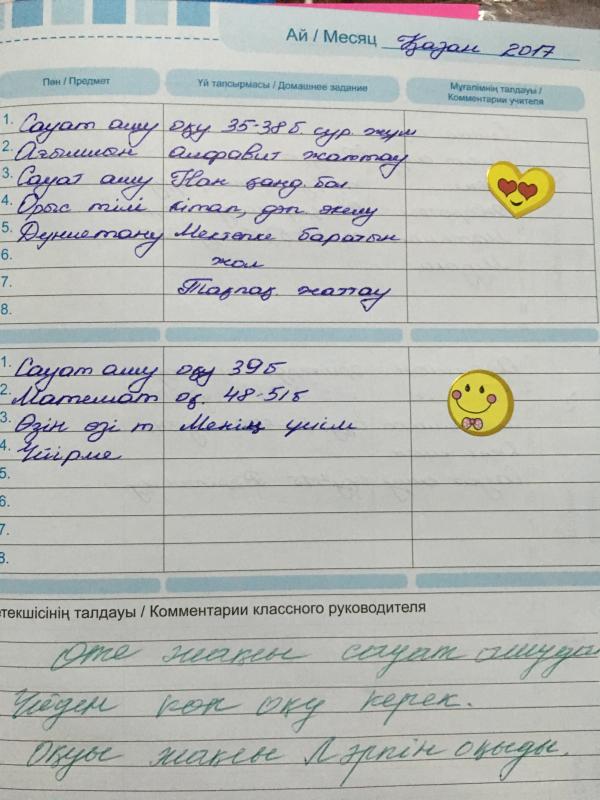 Ай / Месяц Қазан 2017
Пән / Предмет Үй тапсырмасы / Домашнее задание Мұғалімнің талдауы / Комментарии учителя
1. Сауат ашу оқу 35-38 б. сұр. жұм
2. Ағылшын алфавит жаттау
3. Сауат ашу Нан қанд. бол.
4. Орыс тілі кітап, дәп. әкелу
5. Дүниетану Мектепке баратын
6. жол
7. Тақпақ жаттау
8.
1. Сауат ашу оқу 39б
2. Математ оқ. 48-51б
3. Өзін өзі т Менің үйім
4. Үйірме
5.
6.
7.
8.
етекшісінің талдауы / Комментарии классного руководителя
Өте жақсы сауат ашудан
Үйден көп оқу керек.
Оқуы жақсы Л әрпін оқыды.